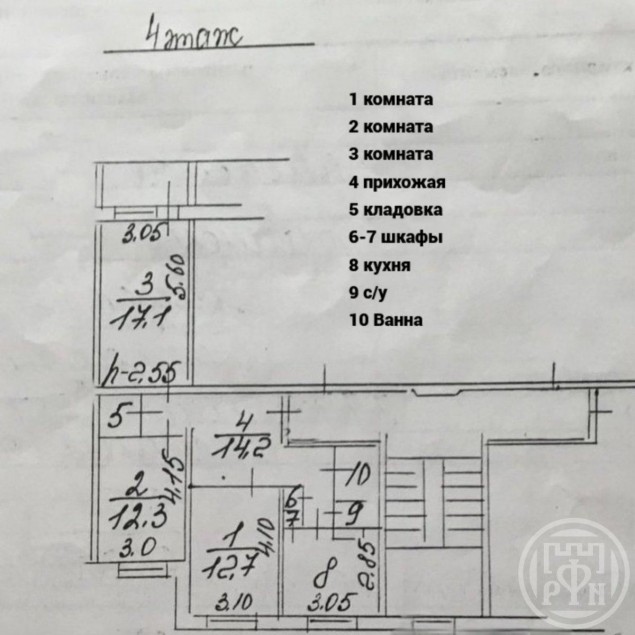 4 этаж
1 комната
2 комната
3 комната
4 прихожая
5 кладовка
6-7 шкафы
8 кухня
9 с/у
10 Ванна
3.05
5.60
3
17,1
h-2,55
5
4
14,2
10
2
12,3
4,15
3.0
6
7
9
1
12,7
4,10
3.10
8
2,85
3.05
РФН